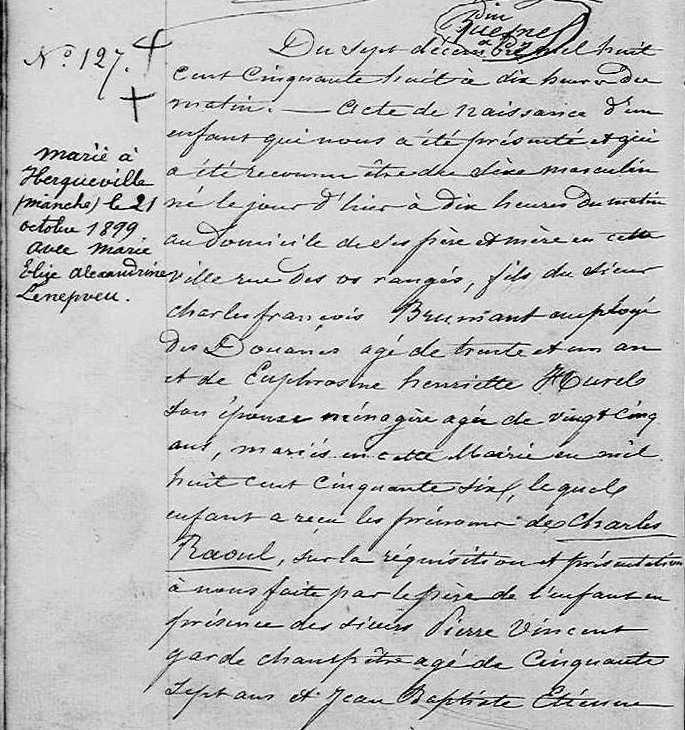 N.o 127.
marié à
Herqueville
(manche) le 21
octobre 1899
avec Marie
Elise alexandrine
Lenepveu.
Du sept décembre mil huit
cent Cinquante huit à dix heures Du
matin. — Acte de Naissance d'un
enfant qui nous a été présenté et qui
a été reconnu être du Sexe masculin
né le jour d'hier à dix heures Du matin
au Domicile de Ses père et mère en cette
Ville rue Des os rangés, fils du Sieur
Charles françois Brumant employé
Des Douanes agé de trente et un an
et de Euphrosine henriette Hurel
Son épouse ménagère agée de Vingt Cinq
ans, mariés en cette Mairie en mil
huit cent Cinquante Six, lequel
enfant a reçu les prénoms de Charles
Raoul, sur la réquisition et présentation
à nous faite par le père de l'enfant en
présence des sieurs Pierre Vincent
garde champêtre agé de Cinquante
Sept ans et Jean Baptiste Etienne